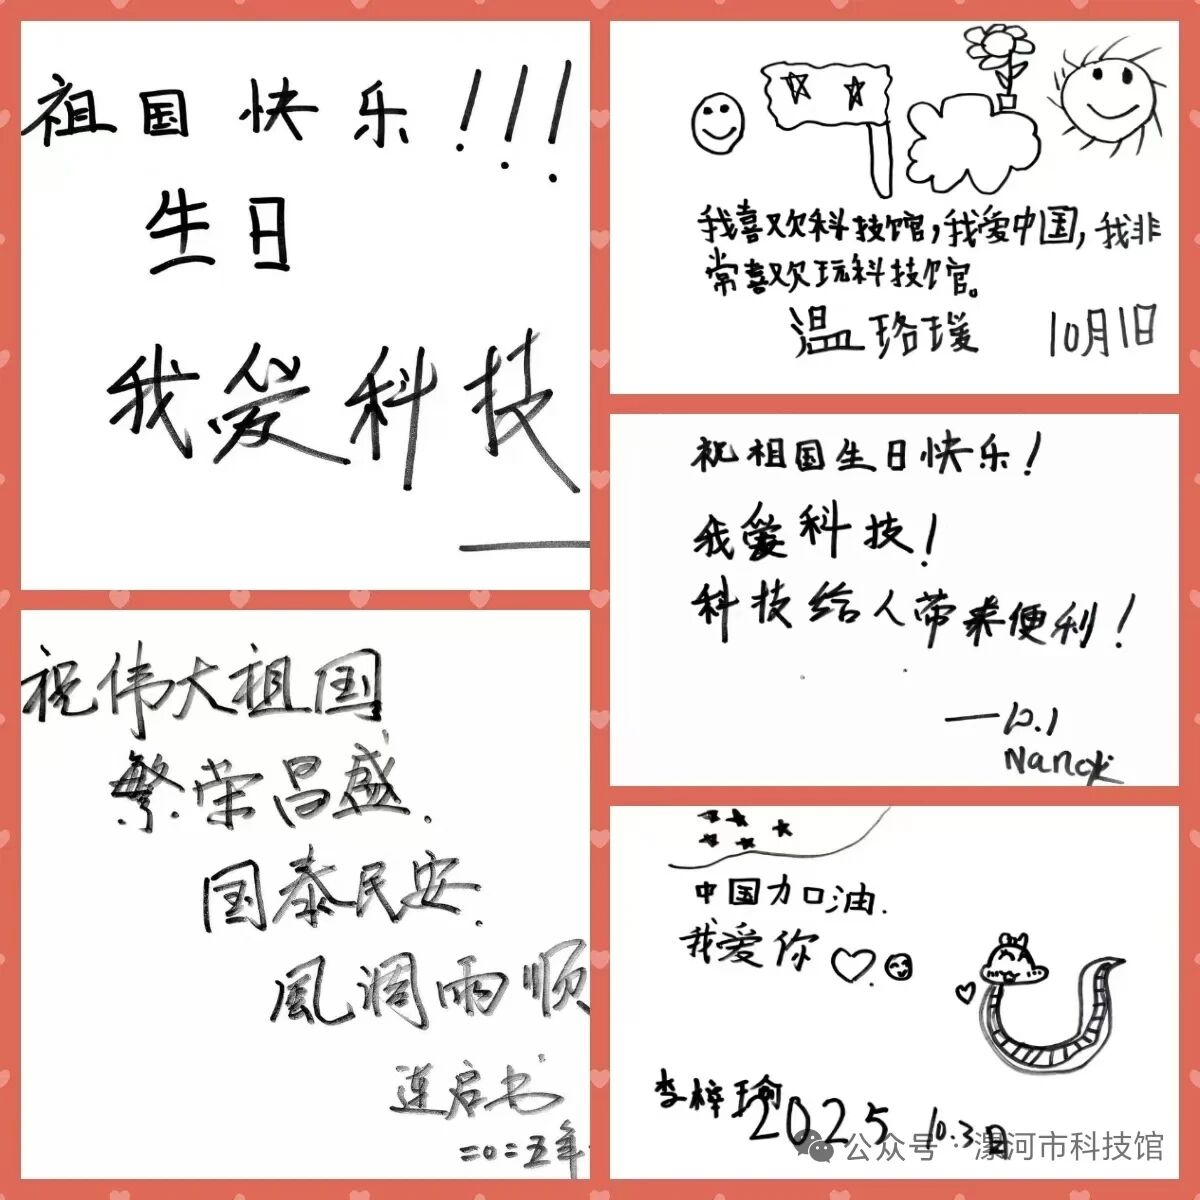 祖国快乐!!!
生日
我爱科技
祝伟大祖国
繁荣昌盛.
国泰民安.
風调雨顺
连启书
二〇二五年
我喜欢科技馆,我爱中国,我非
常喜欢玩科技馆。
温珞瑗 10月1日
祝祖国生日快乐!
我爱科技!
科技给人带来便利!
—10.1
Nancy
中国加油.
我爱你
李梓瑜 2025 10.3日
公众号·漯河市科技馆